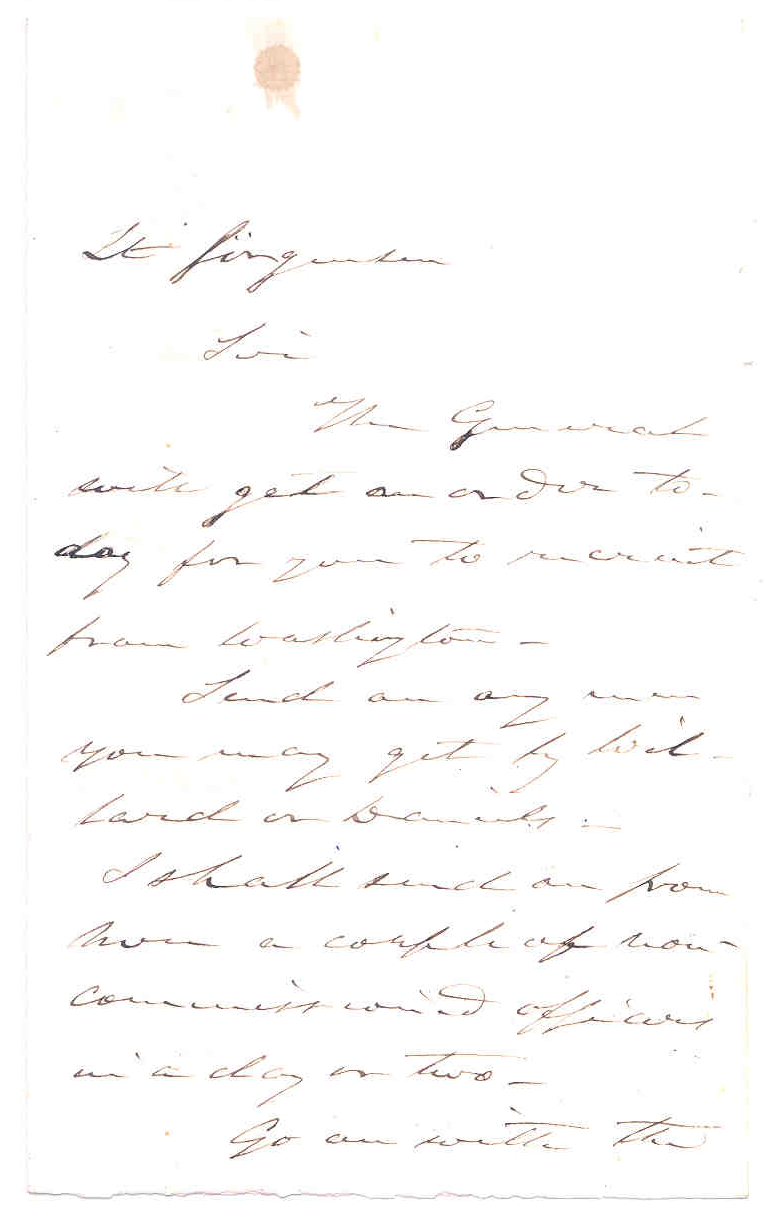 Lt Jörgensen
Sir
The General
will get an order to-
day for you to recruit
from Washington -
Send on any men
you may get by Wil-
lard or Daniels. -
I shall send on from
here a couple of non-
commissioned officers
in a day or two -
Go on with the